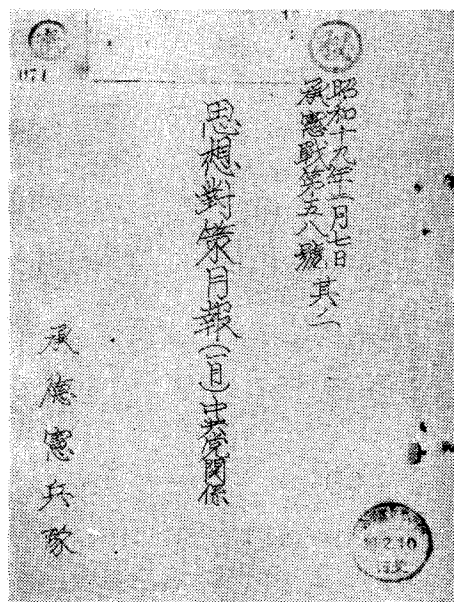 秘
昭和十九年二月七日
承憲戰第五八號 其二
思想對策月報(一月)中共党関係
承德憲兵隊
071
2.10